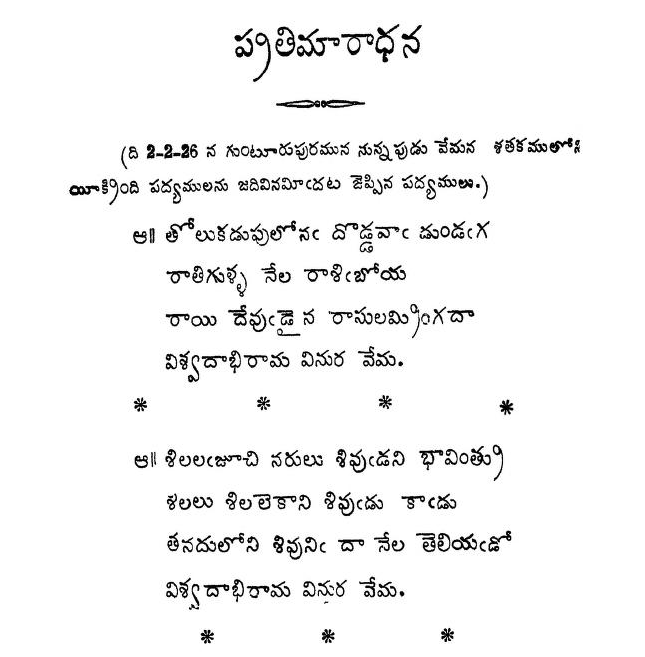 ప్రతిమారాధన
(ది 2-2-26 న గుంటూరుపురమున నున్నపుడు వేమన శతకములోని
యీక్రింది పద్యములను జదివినమీఁదట జెప్పిన పద్యములు.)
ఆ॥ తోలుకడుపులోనఁ దొడ్డవాఁ డుండఁగ
రాతిగుళ్ళ నేల రాశిఁబోయ
రాయి దేవుఁడై న రాసులమ్రింగదా
విశ్వదాభిరామ వినుర వేమ.
* * * *
ఆ॥ శిలలఁజూచి నరులు శివుఁడని భావింత్రు
శిలలు శిలలెకాని శివుఁడు కాఁడు
తనదులోని శివునిఁ దా నేల తెలియఁడో
విశ్వదాభిరామ వినుర వేమ.
* * *